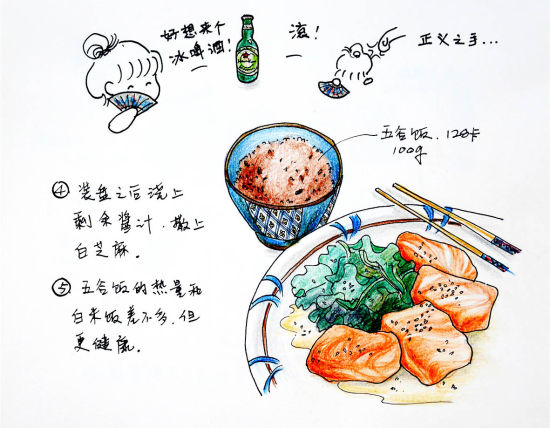 好想来个
冰啤酒!
滚!
正义之手...
五谷饭. 120卡
100g
④ 装盘之后浇上
剩余醬汁. 撒上
白芝麻.
⑤ 五谷饭的热量和
白米饭差不多, 但
更健康.